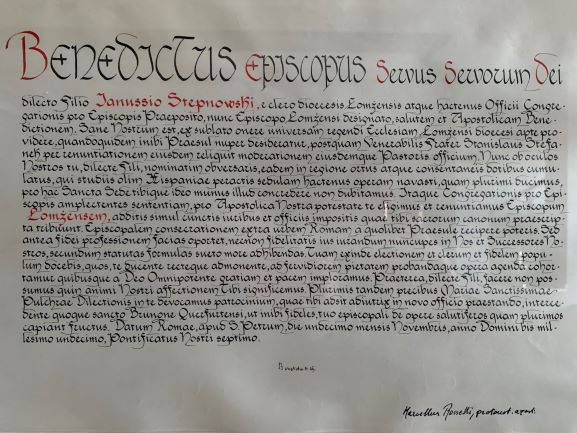 BENEDICTUS EPISCOPUS Servus Servorum Dei
dilecto Filio Ianussio Stepnowski, e clero dioecesis Lomżensis atque hactenus Officii Congre-
gationis pro Episcopis Praeposito, nunc Episcopo Lomżensi designato, salutem et Apostolicam Bene-
dictionem. Sane Nostrum est, ex sublato onere universam regendi Ecclesiam, Lomżensi dioecesi apte pro-
videre, quandoquidem inibi Praesul nuper desideratur, postquam Venerabilis Frater Stanislaus Stefa-
nek per renuntiationem eiusdem reliquit moderationem eiusdemque Pastoris officium. Nunc ob oculos
Nostros tu, dilecte Fili, nominatim obversaris, eadem in regione ortus atque consentaneis dotibus cumu-
latus, qui studiis olim Hispaniae peractis sedulam hactenus operam navasti, quam plurimi ducimus,
pro hac Sancta Sede tibique ideo munus illud concredere non dubitamus. Itaque Congregationis pro Epi-
scopis amplectentes sententiam, pro Apostolica Nostra potestate te eligimus et renuntiamus Episcopum
Lomżensem, additis simul cunctis iuribus et officiis impositis quae tibi sacrorum canonum praescrip-
ta tribuunt. Episcopalem consecrationem extra urbem Romam a quolibet Praesule recipere poteris. Sed
antea fidei professionem facias oportet, necnon fidelitatis ius iurandum nuncupes in Nos et Successores No-
stros, secundum statutas formulas sueto more adhibendas. Cuam exinde electionem et clerum et fidelem popu-
lum docebis, quos, te ducente tecteque admonente, ad fervidiorem pietatem probandaque opera agenda cohor-
tamur quibusque a Deo Omnipotente gratiam et pacem imploramus. Praeterea, dilecte Fili, facere non pos-
sumus quin animi Nostri affectionem Tibi significemus. Plurimis tandem precibus Mariae Sanctissimae
Pulchrae Dilectionis in te devocamus patrocinium, quae tibi adsit adiutrix in novo officio praestando, interce-
dente quoque sancto Brunone Querfurtensi, ut inibi fideles, tuo episcopali de opere salutiferos quam plurimos
capiant fructus. Datum Romae, apud S. Petrum, die undecimo mensis Novembris, anno Domini bis mil-
lesimo undecimo, Pontificatus Nostri septimo.
Marcellus Rossetti, protonot. apost.